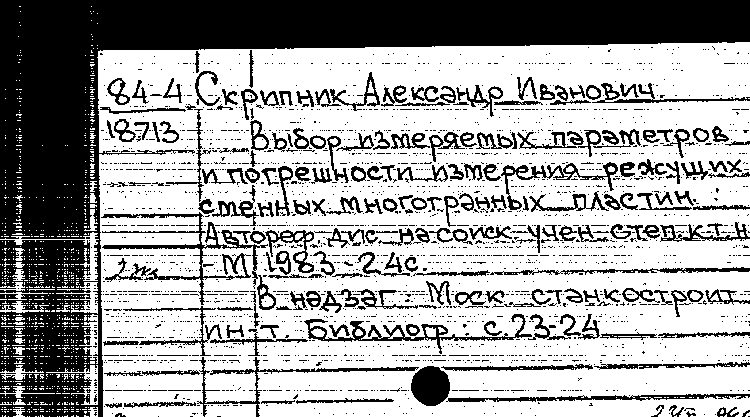 84-4 Скрипник Александр Иванович.
18713 Выбор измеряемых параметров
и погрешности измерения режущих
сменных многогранных пластин.
Автореф. дис. на соиск. учен. степ. к.т.н
- М., 1983 - 24с.
В надзаг.: Моск. станкостроит.
ин-т. Библиогр.: с. 23-24